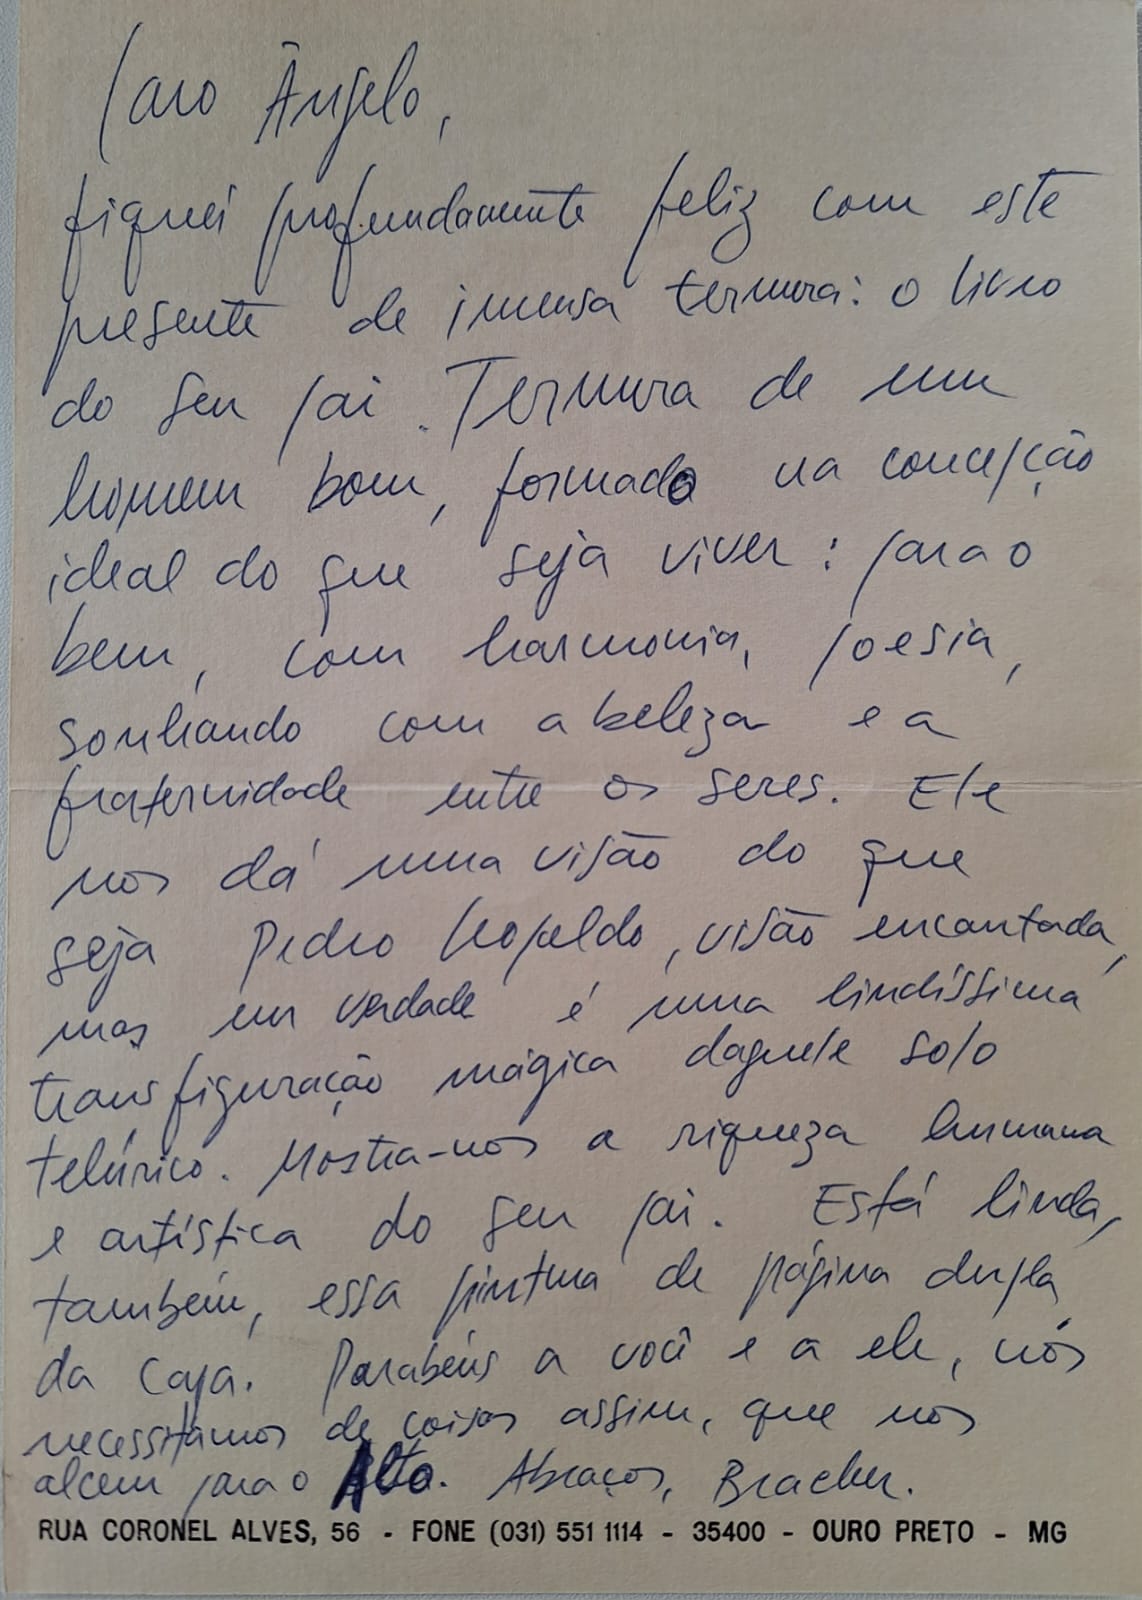 Caro Ângelo,
fiquei profundamente feliz com este
presente de imensa ternura: o livro
do seu pai. Ternura de um
homem bom, formado na concepção
ideal do que seja viver: para o
bem, com harmonia, poesia,
sonhando com a beleza e a
fraternidade entre os seres. Ele
nos dá uma visão do que
seja Pedro Leopoldo, visão encantada,
mas em verdade é uma lindíssima
transfiguração mágica daquele solo
telúrico. Mostra-nos a riqueza humana
e artística do seu pai. Está linda,
também, essa pintura de página dupla
da capa. Parabéns a você e a ele, nós
necessitamos de coisas assim, que nos
alcem para o Alto. Abraços, Bracher.
RUA CORONEL ALVES, 56 - FONE (031) 551 1114 - 35400 - OURO PRETO - MG